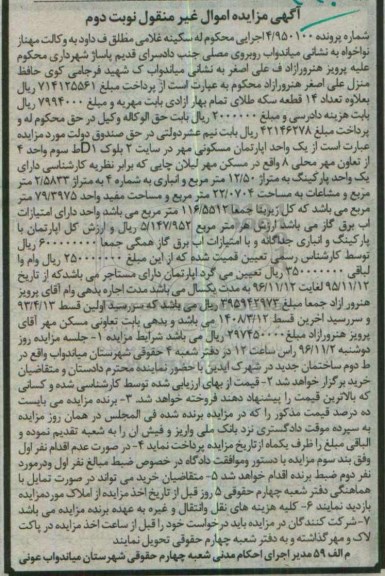 آگهی مزایده اموال غیر منقول نوبت دوم
شماره پرونده ۴/۹۵۰۱۰۰ اجرایی محکوم له سکینه غلامی مطلق ف داود به وکالت مهناز
نواخواه به نشانی میاندواب روبروی مصلی جنب دادسرای قدیم پاساژ شهرداری محکوم
علیه پرویز هنرورازاد ف علی اصغر به نشانی میاندواب ک شهید فرجامی کوی حافظ
منزل علی اصغر هنرورازاد محکوم به عبارت است از پرداخت مبلغ ۷۱۴۱۲۵۵۶۱ ریال
بعلاوه تعداد ۱۴ قطعه سکه طلای تمام بهار ازادی بابت مهریه و مبلغ ۷۹۹۴۰۰۰ ریال
بابت هزینه دادرسی و مبلغ ۲۰۰۰۰۰۰ ریال بابت حق الوکاله وکیل در حق محکوم له و
پرداخت مبلغ ۴۲۱۴۶۲۷۸ ریال بابت نیم عشر دولتی در حق صندوق دولت مورد مزایده
عبارت است از یک واحد اپارتمان مسکونی مهر در سایت ۲ بلوک D1 ط سوم واحد ۴
از تعاون مهر محلی ۸ واقع در مسکن مهر لیلان چایی که برابر نظریه کارشناسی دارای
یک واحد پارکینگ به متراژ ۱۲/۵۰ متر مربع و انباری به شماره ۴ به متراژ ۲/۵۸۳۳ متر
مربع و مشاعات به مساحت ۲۲/۰۷۰۴ متر مربع و مساحت مفید واحد ۷۹/۳۹۷۵ متر
مربع می باشد که کل زیربنا جمعا ۱۱۶/۵۵۱۲ متر مربع می باشد واحد دارای امتیازات
اب برق گاز می باشد ارزش هر متر مربع ۵/۱۴۷/۹۵۲ ریال و ارزش کل اپارتمان با
پارکینگ و انباری جداگانه و با امتیازات اب برق گاز همگی جمعا ۶۰۰۰۰۰۰۰۰ ریال
توسط کارشناس رسمی تعیین قیمت شده که از این مبلغ ۲۵۰۰۰۰۰۰۰ ریال وام وا
لباقی ۳۵۰۰۰۰۰۰۰ ریال تعیین می گردد اپارتمان دارای مستاجر می باشد که از تاریخ
۹۵/۱۱/۱۲ لغایت ۹۶/۱۱/۱۲ به مدت یکسال می باشد مدت اجاره بدهی وام آقای پرویز
هنرور ازاد جمعا مبلغ ۳۹۵۹۴۲۹۷۳ ریال می باشد که سررسید اولین قسط ۹۳/۴/۱۳
و سررسید اخرین قسط ۱۴۰۸/۳/۱۲ می باشد و بدهی بابت تعاونی مسکن مهر آقای
پرویز هنرورازاد مبلغ ۲۹۷۴۵۰۰۰۰ ریال می باشد شرایط مزایده ۱- جلسه مزایده روز
دوشنبه ۹۶/۱۱/۲ راس ساعت ۱۲ در دفتر شعبه ۴ حقوقی شهرستان میاندواب واقع در
ط دوم ساختمان جدید در شهرک ایدین با حضور نماینده محترم دادستان و متقاضیان
خرید برگزار خواهد شد ۲- قیمت از بهای ارزیابی شده توسط کارشناسی شده و کسانی
که بالاترین قیمت را پیشنهاد دهند فروخته خواهد شد. ۳- برنده مزایده می بایست
ده درصد قیمت مذکور را که در مزایده برنده شده فی المجلس در همان روز مزایده
به سپرده موقت دادگستری نزد بانک ملی واریز و فیش ان را به شعبه تقدیم نموده و
الباقی مبلغ را ظرف یکماه از تاریخ مزایده پرداخت نماید ۴- در صورت عدم اقدام نفر اول
وفق بند سوم مزایده با دستور وموافقت دادگاه در خصوص ضبط مبالغ نفر اول ودرمورد
نفر دوم ضبط برنده اقدام خواهد شد ۵- متقاضیان خرید می تواند در صورت تمایل با
هماهنگی دفتر شعبه چهارم حقوقی ۵ روز قبل از تاریخ اخذ مزایده از املاک موردمزایده
بازدید نمایند ۶- کلیه هزینه های نقل وانتقال و غیره به عهده برنده مزایده می باشد
۷- شرکت کنندگان در مزایده باید درخواست خود را قبل از ساعت اخذ مزایده در پاکت
لاک و مهر گذاشته و به دفتر شعبه چهارم حقوقی تحویل نمایند
م الف ۵۹ مدیر اجرای احکام مدنی شعبه چهارم حقوقی شهرستان میاندواب عونی